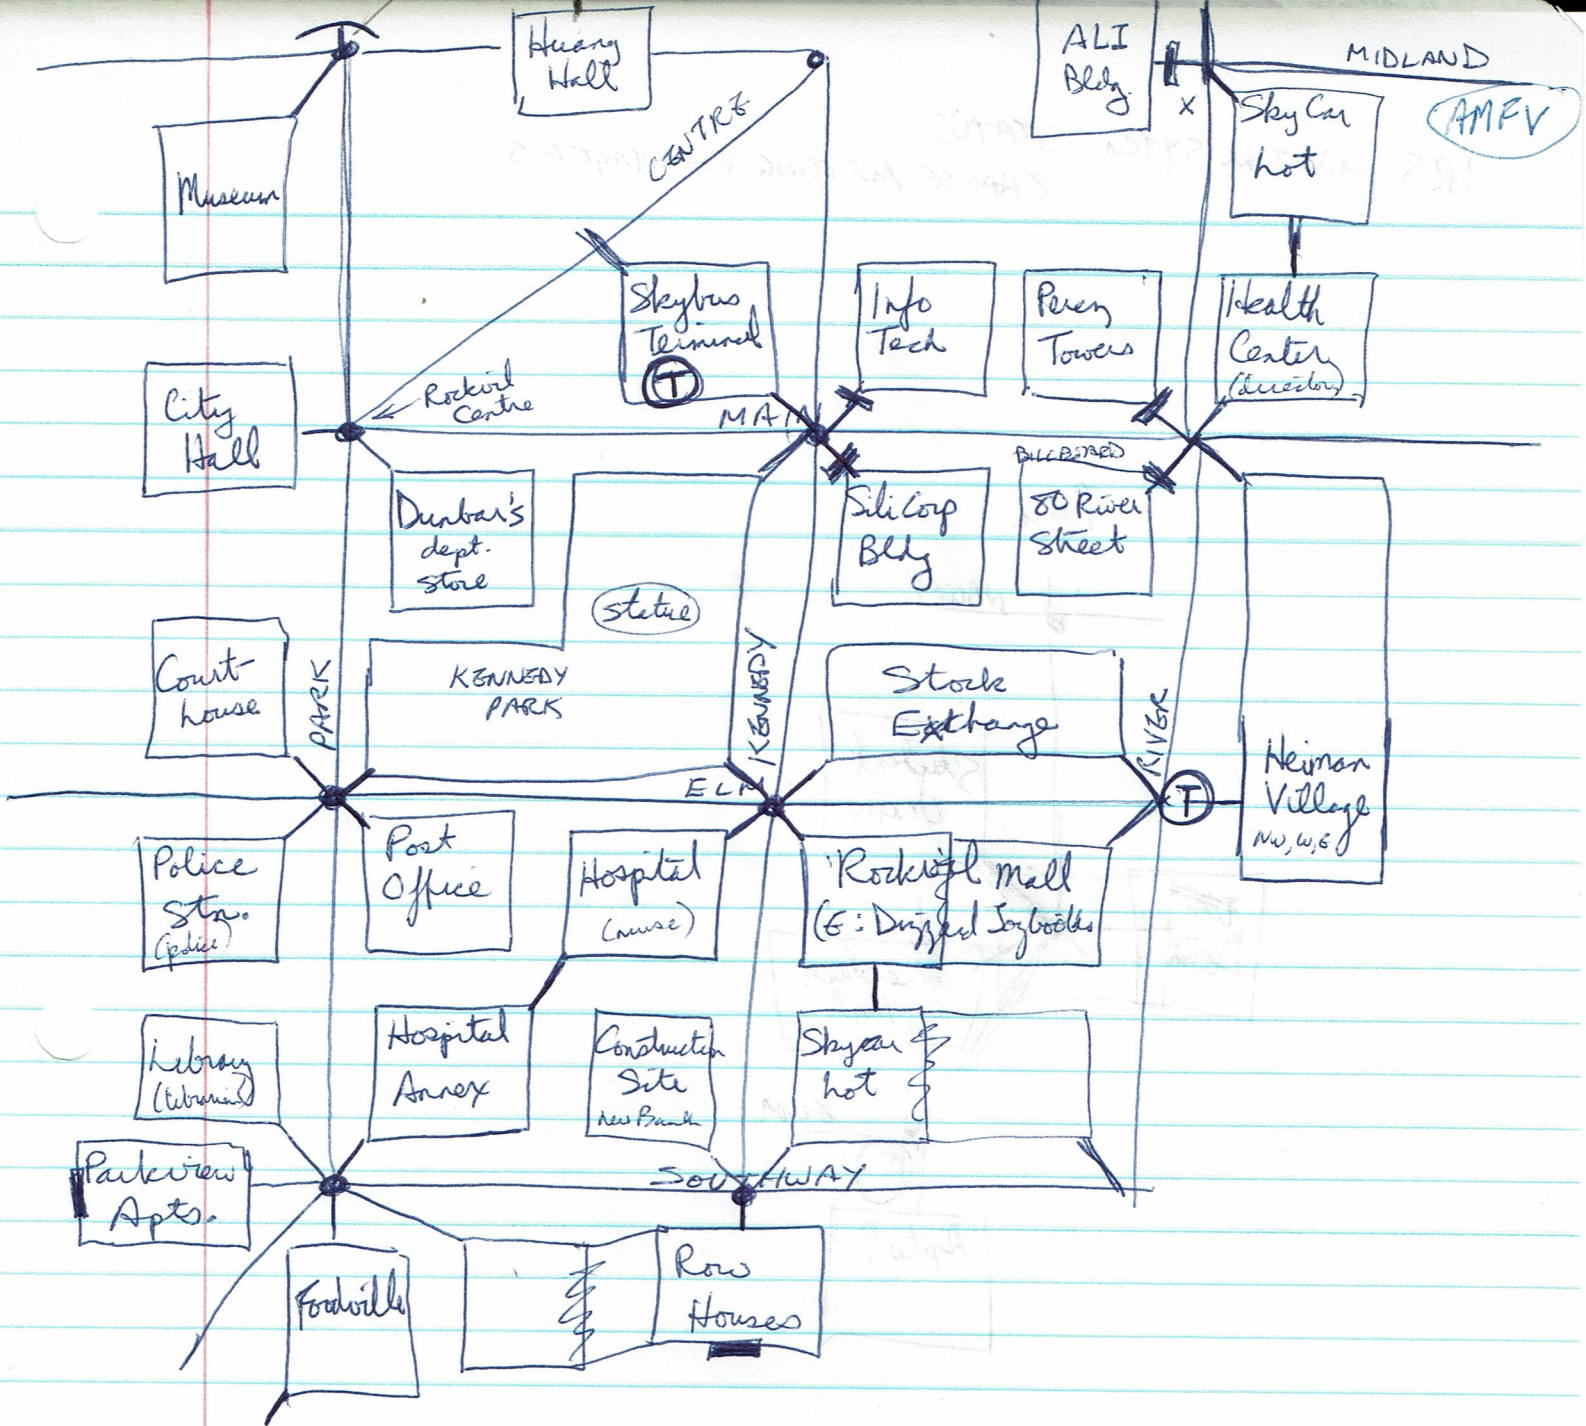 Huang
Hall
ALI
Bldg.
MIDLAND
AMFV
x
SkyCar
Lot
CENTRE
Museum
Skybus
Terminal
T
Info
Tech
Perez
Towers
Health
Center
(directory)
City
Hall
Rockvil
Centre
MAIN
BILLBOARD
Dunbar's
dept.
store
SiliCorp
Bldg
80 River
Street
statue
Court-
house
PARK
KENNEDY
PARK
KENNEDY
Stock
Exchange
RIVER
Heiman
Village
NW, W, E
ELM
T
Police
Stn.
(police)
Post
Office
Hospital
(nurse)
Rockvil Mall
(E: Joybooths
Library
(librarian)
Hospital
Annex
Construction
Site
New Bank
Skycar
Lot
Parkview
Apts.
SOUTHWAY
Foodville
Row
Houses